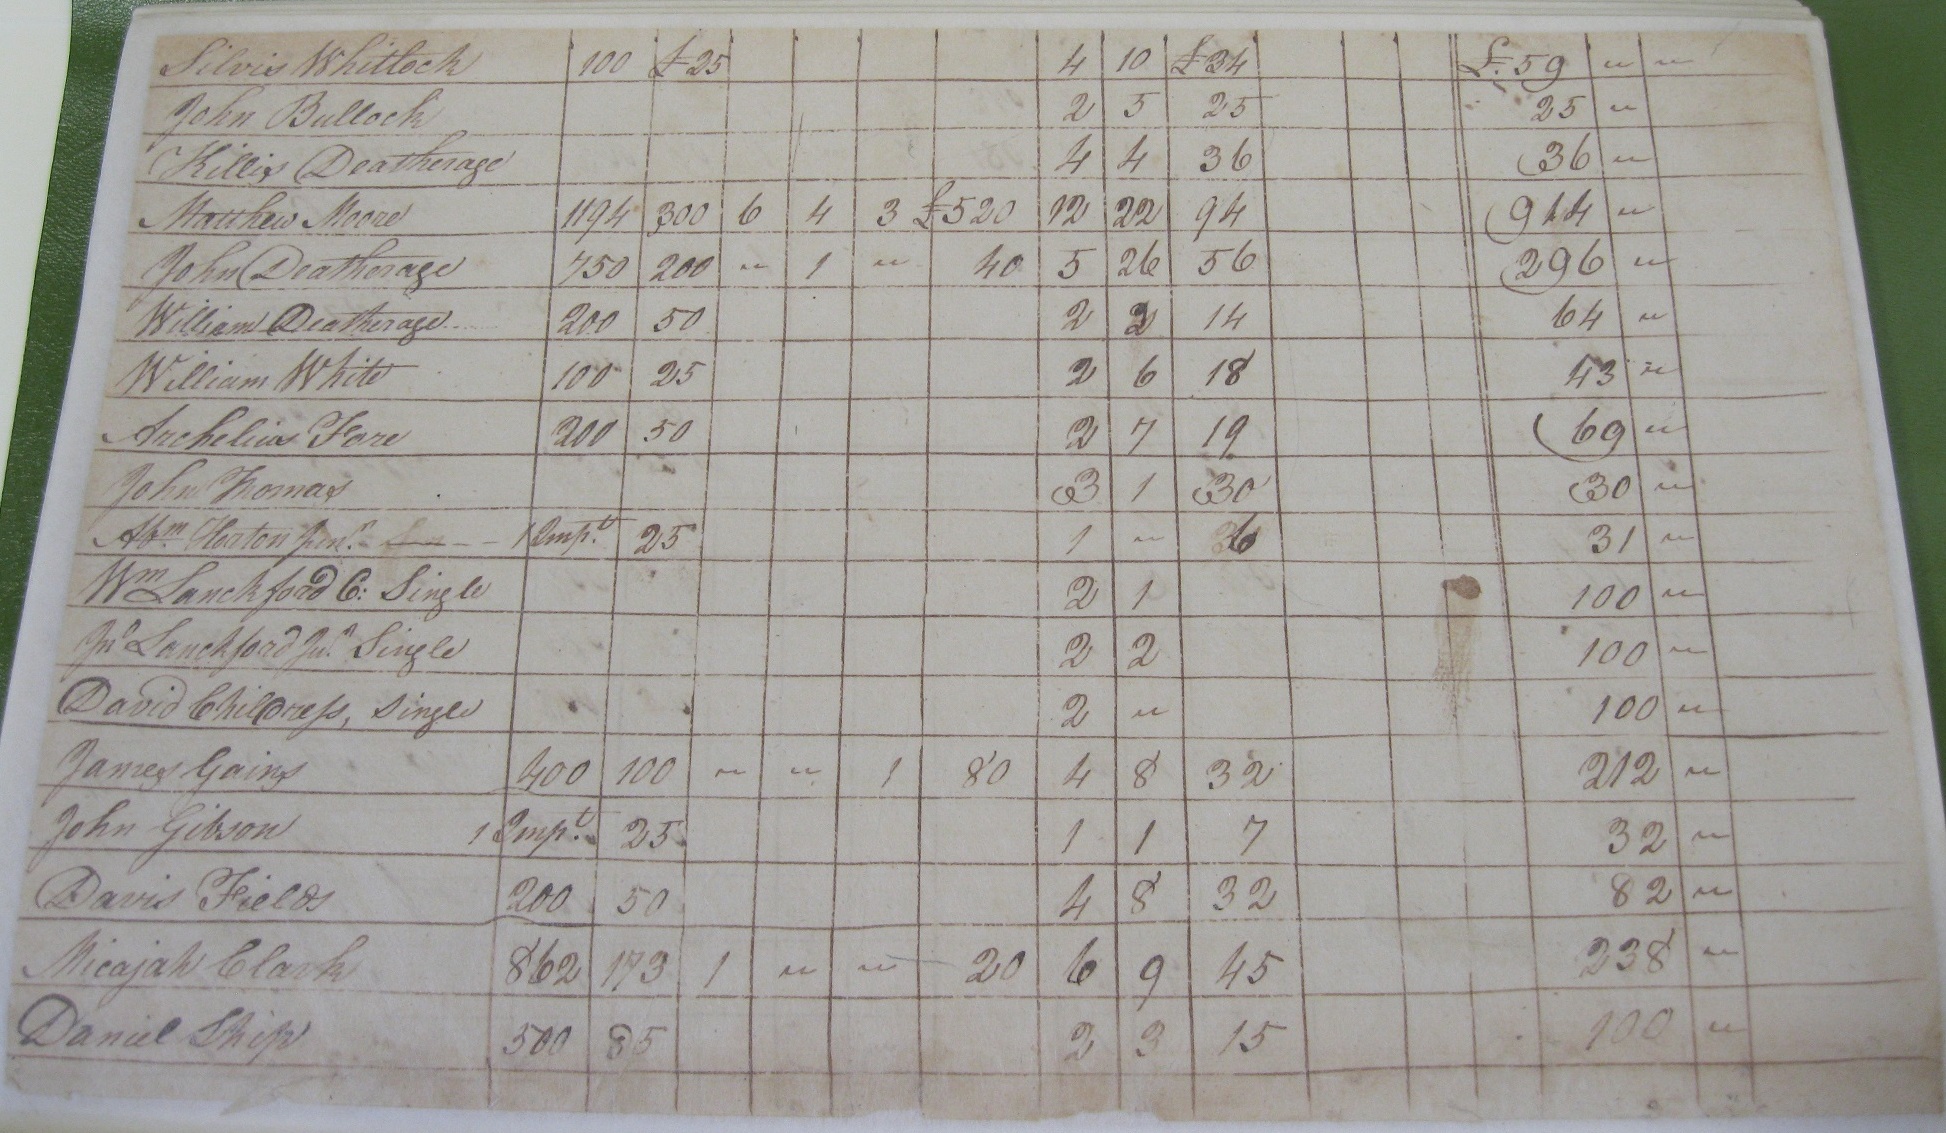 Silvis Whitlock 100 £25 4 10 £34 £59 " "
John Bullock 2 5 25 25 "
Killis Deatherage 4 4 36 36 "
Matthew Moore 1194 300 6 4 3 £520 12 22 94 914 "
John Deatherage 750 200 " 1 " 40 5 26 56 296 "
William Deatherage 200 50 2 2 14 64 "
William White 100 25 2 6 18 43 "
Archelius Fare 200 50 2 7 19 69 "
John Thomas 3 1 30 30 "
Abm Horton Junr 1 Impt 25 1 " 6 31 "
Wm Lanckford C: Single 2 1 100 "
Jno Lanckford Junr Single 2 2 100 "
David Childress, Single 2 " 100 "
James Gains 400 100 " " 1 80 4 8 32 212 "
John Gibson 1 Impt 25 1 1 7 32 "
Davis Fields 200 50 4 8 32 82 "
Micajah Clark 862 173 1 " " 20 6 9 45 238 "
Daniel Ship 500 85 2 3 15 100 "